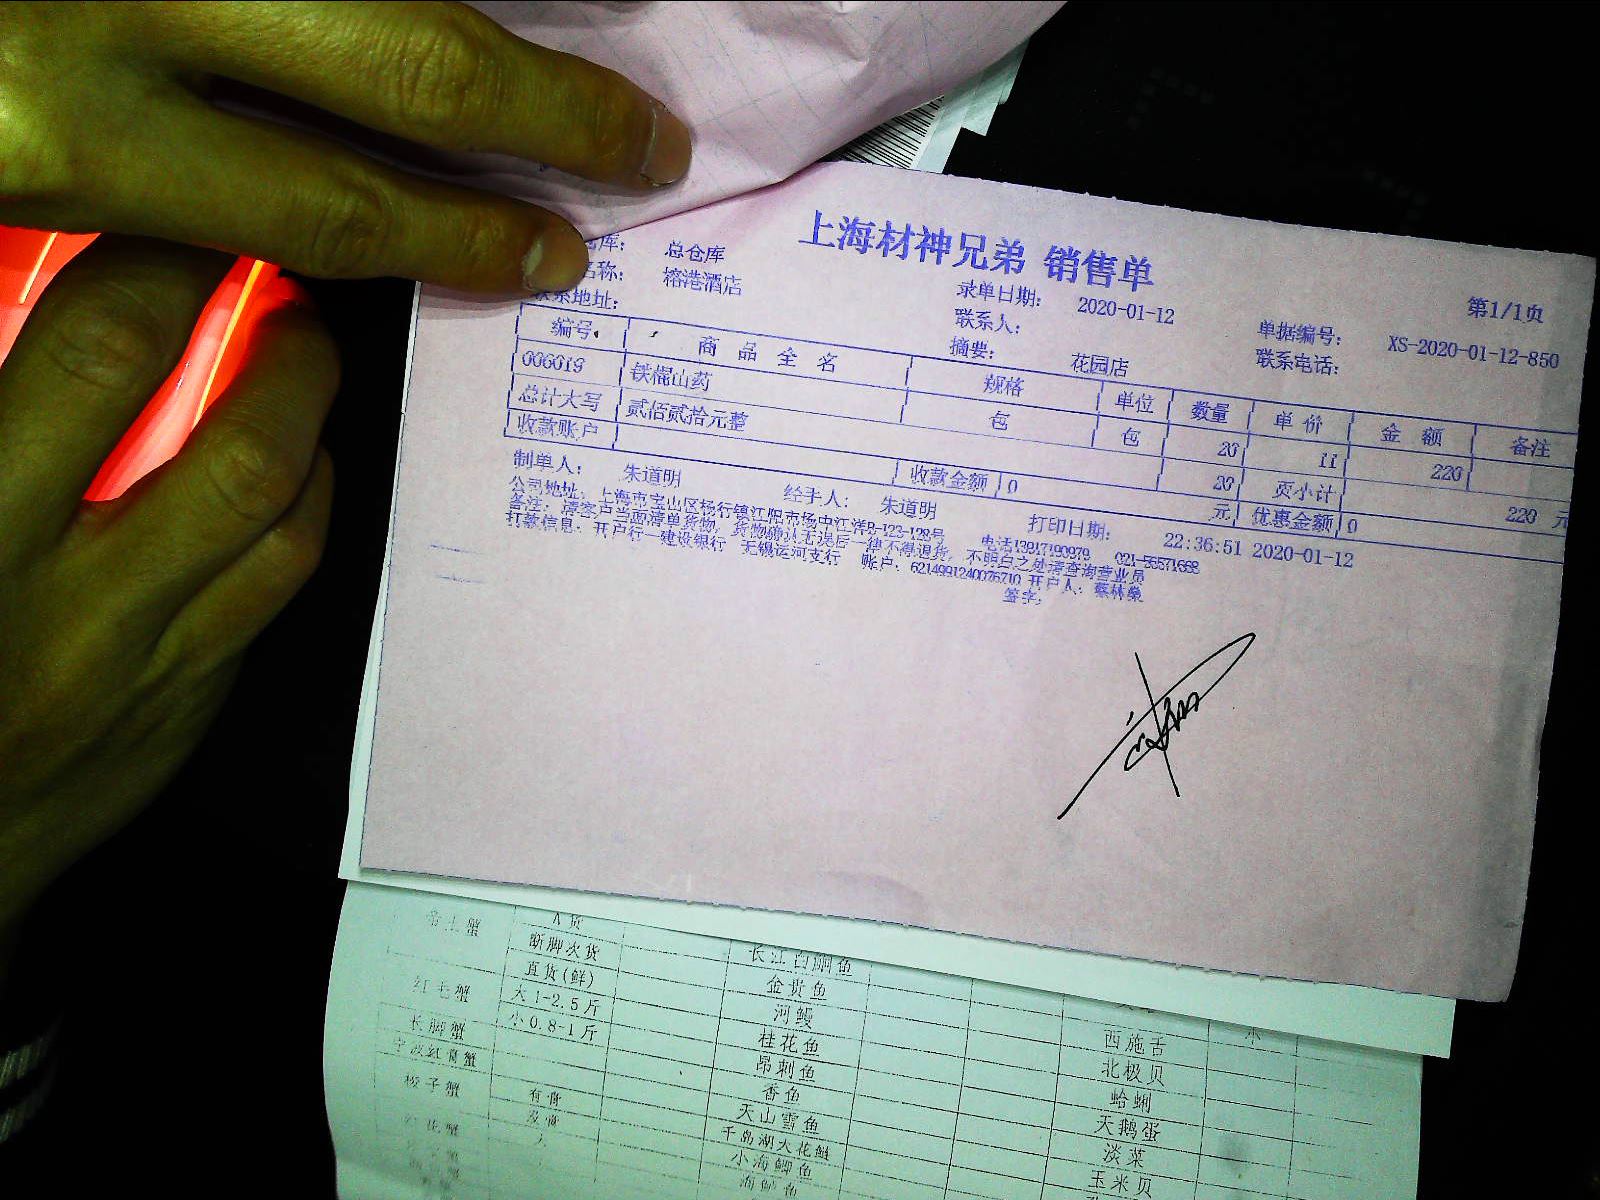 上海材神兄弟 销售单
库： 总仓库
名称： 榕港酒店 录单日期： 2020-01-12 第1/1页
联系地址： 联系人： 单据编号： XS-2020-01-12-850
摘要： 花园店 联系电话：
编号 商品全名 规格 单位 数量 单价 金额 备注
006019 铁棍山药 包 包 20 11 220
总计大写 贰佰贰拾元整 20 页小计 220 元
收款账户 收款金额 0 元 优惠金额 0
制单人： 朱道明 经手人： 朱道明 打印日期： 22:36:51 2020-01-12
公司地址：上海市宝山区杨行镇江阳市场中江洋B-123-128号 电话13917190979 021-56571668
备注：请客户当面清单货物，货物确认无误后一律不得退货，不明白之处请查询营业员
打款信息：开户行—建设银行 无锡运河支行 账户：6214991240076710 开户人：蔡林燊
签字：
帝王蟹 A货
断脚次货 长江白鮰鱼
直货(鲜) 金贵鱼
红毛蟹 大1-2.5斤 河鳗
小0.8-1斤 桂花鱼 西施舌 小
长脚蟹 昂刺鱼 北极贝
宁波红膏蟹 香鱼 蛤蜊
梭子蟹 有膏 天山雪鱼 天鹅蛋
没膏 千岛湖大花鲢 淡菜
花蟹 大 小海鲫鱼 玉米贝